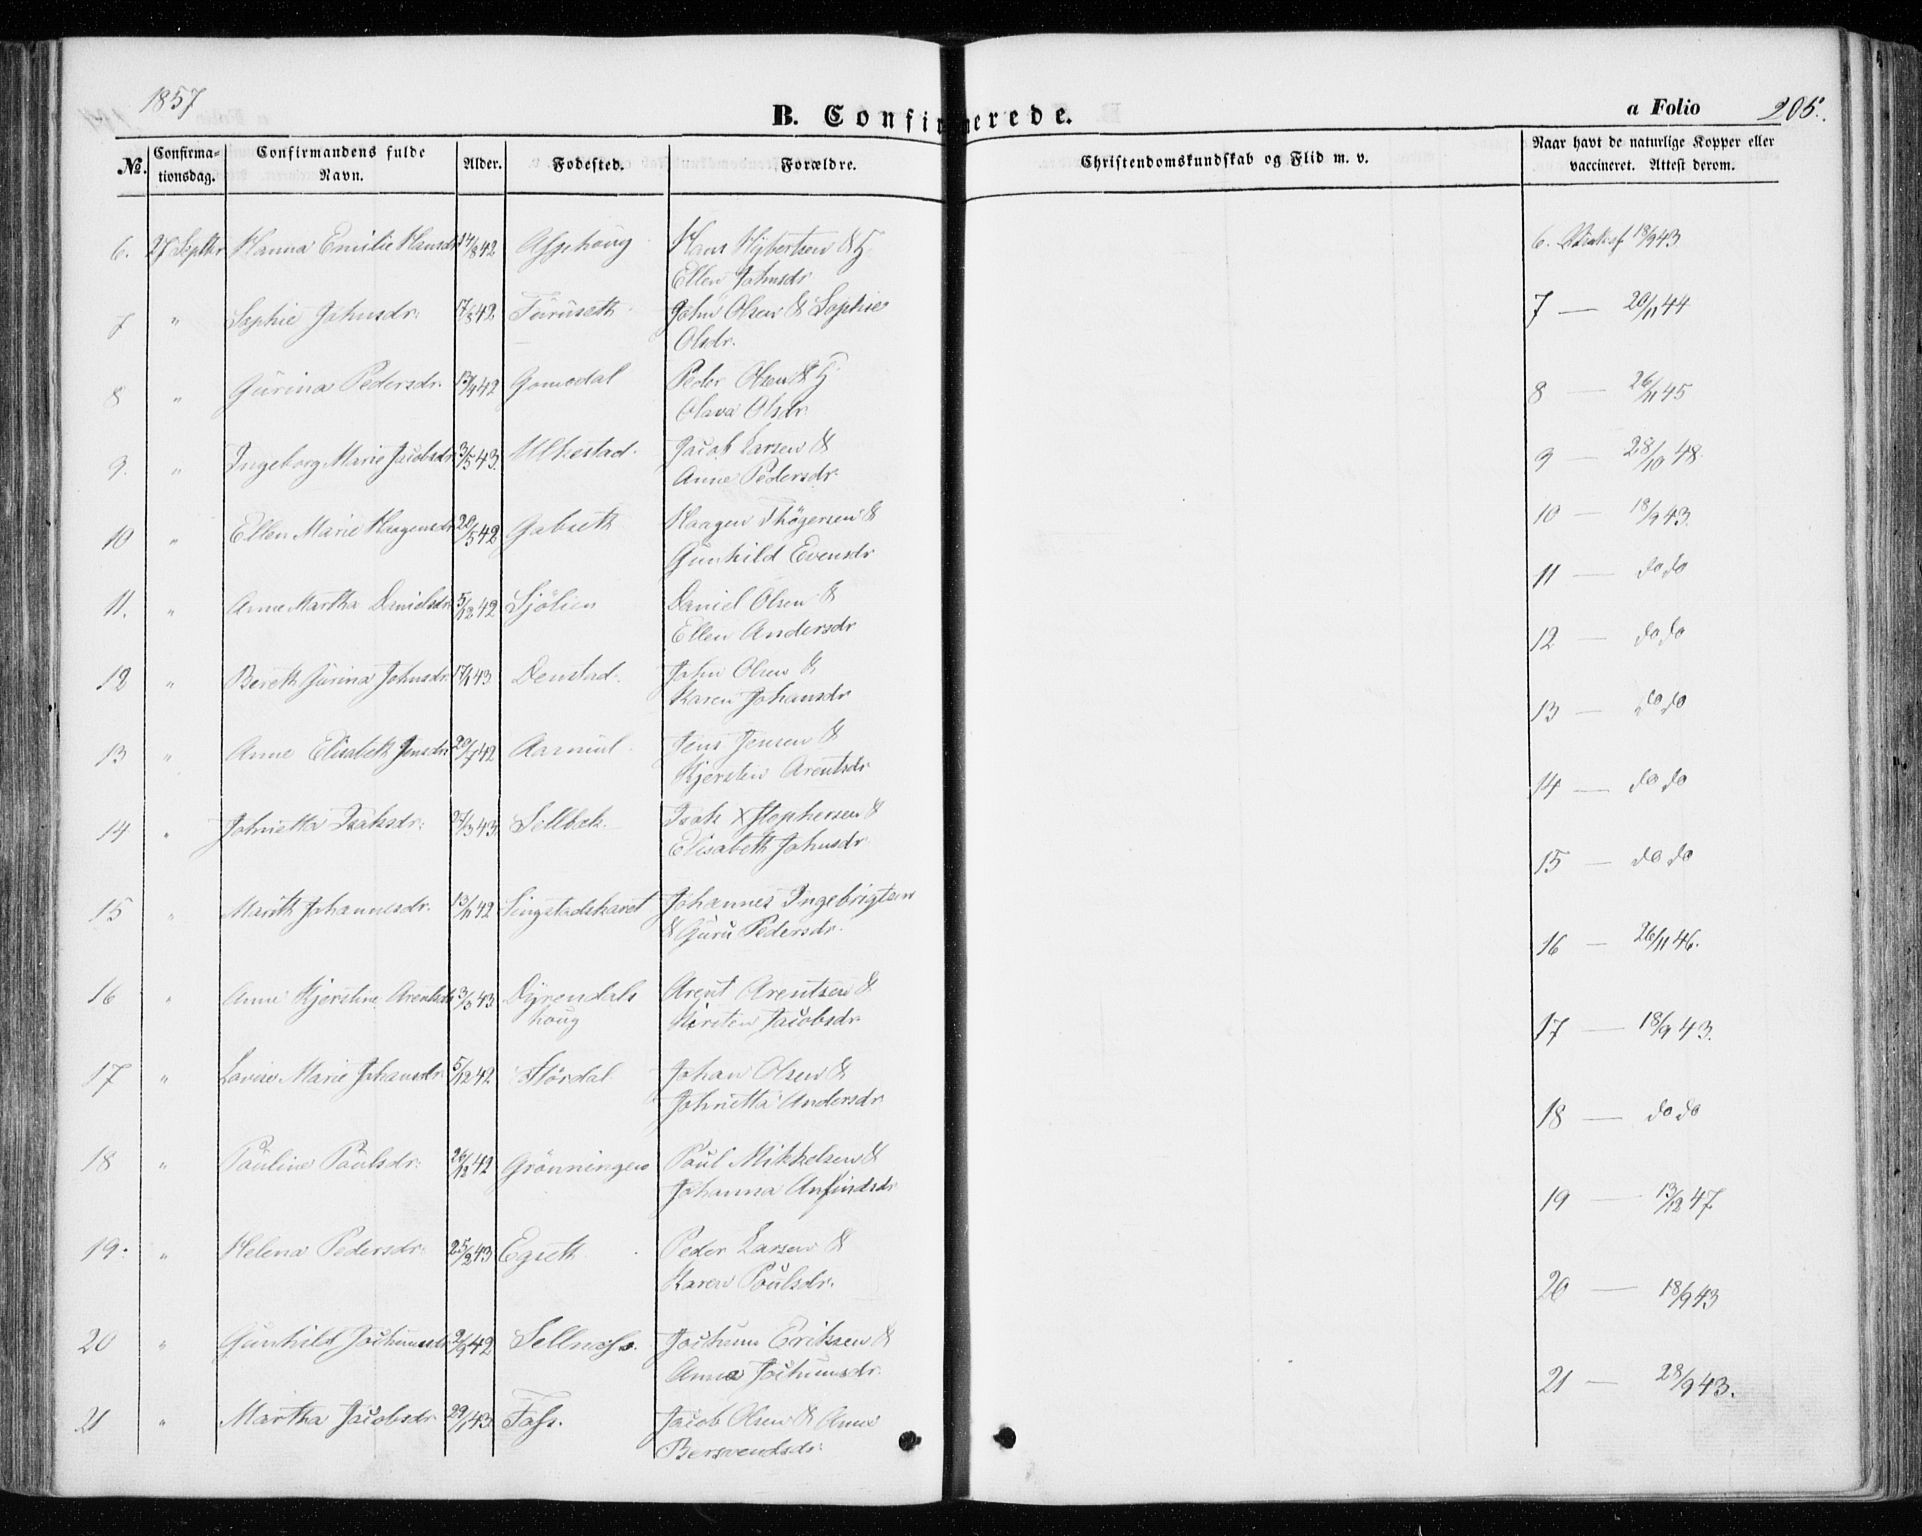 1857
B. Confirmerede.
a Folio 205.
No.
Confirmationsdag.
Confirmandens fulde Navn.
Alder.
Fodested.
Forældre.
Christendomskundskab og Flid m. v.
Naar havt de naturlige Kopper eller vaccineret. Attest derom.
6. 27 Septbr Hanna Emilie Hansdr 14/8 42 Hans Hybertsen & H 6. 18/9 43
Ellen Johnsdr
7 " Sophie Johnsdr. 17/8 42 Furuseth John Olsen & Sophie 7 — 20/11 44
Olsdr.
8 " Gurina Pedersdr. 13/9 42 Gomodal Peder Olsen & H 8 — 26/11 45
Olava Olsdr.
9. " Ingeborg Marie Jacobsdr 3/5 43. Ulkestad. Jacob Larsen & 9 — 28/10 48.
Anne Pedersdr.
10 " Ellen Marie Haagensdr 20/5 42 Gabseth Haagen Thögersen & 10 — 18/9 43.
Gunhild Evensdr
11. " Anne Martha Danielsdr 5/12 42 Sjölien Daniel Olsen & 11 — do do
Ellen Andersdr
12 " Bereth Gurina Johnsdr. 17/1 43 Denstad. John Olsen & 12 — do do
Karen Johansdr
13 " Anne Elisabeth Jensdr 20/7 42 Aarnul. Jens Jensen & 13 — do do
Kjersten Arentsdr
14 " Johnetta Isaksdr. 27/3 43. Sellbek. Isak Xstophersen & 14 — do do
Elisabeth Johnsdr.
15 " Marith Johannesdr. 13/11 42 Singstadskaret Johannes Ingebrigtsen 15 — do do
& Guru Pedersdr.
16 " Anne Kjerstine Arentsdr 3/3 43 Dyrendals Arent Arentsen & 16 — 26/11 46.
houg Kirsten Jacobsdr
17 " Lovise Marie Johansdr. 5/12 42 Stördal Johan Olsen & 17 — 18/9 43.
Johnetta Andersdr
18 " Pauline Paulsdr. 26/12 42 Grönningen Paul Mikkelsen & 18 — do do
Johanna Anfindsdr
19. " Helena Pedersdr. 25/2 43 Egseth. Peder Larsen & 19 — 13/12 47.
Karen Paulsdr.
20 " Gunhild Jochumsdr 2/9 42 Sellnæss. Jochum Eriksen & 20 — 18/9 43
Anna Jochumsdr.
21 " Martha Jacobsdr 29/1 43. Foss. Jacob Olsen & Anne 21 — 28/9 43.
Bersvendsdr.